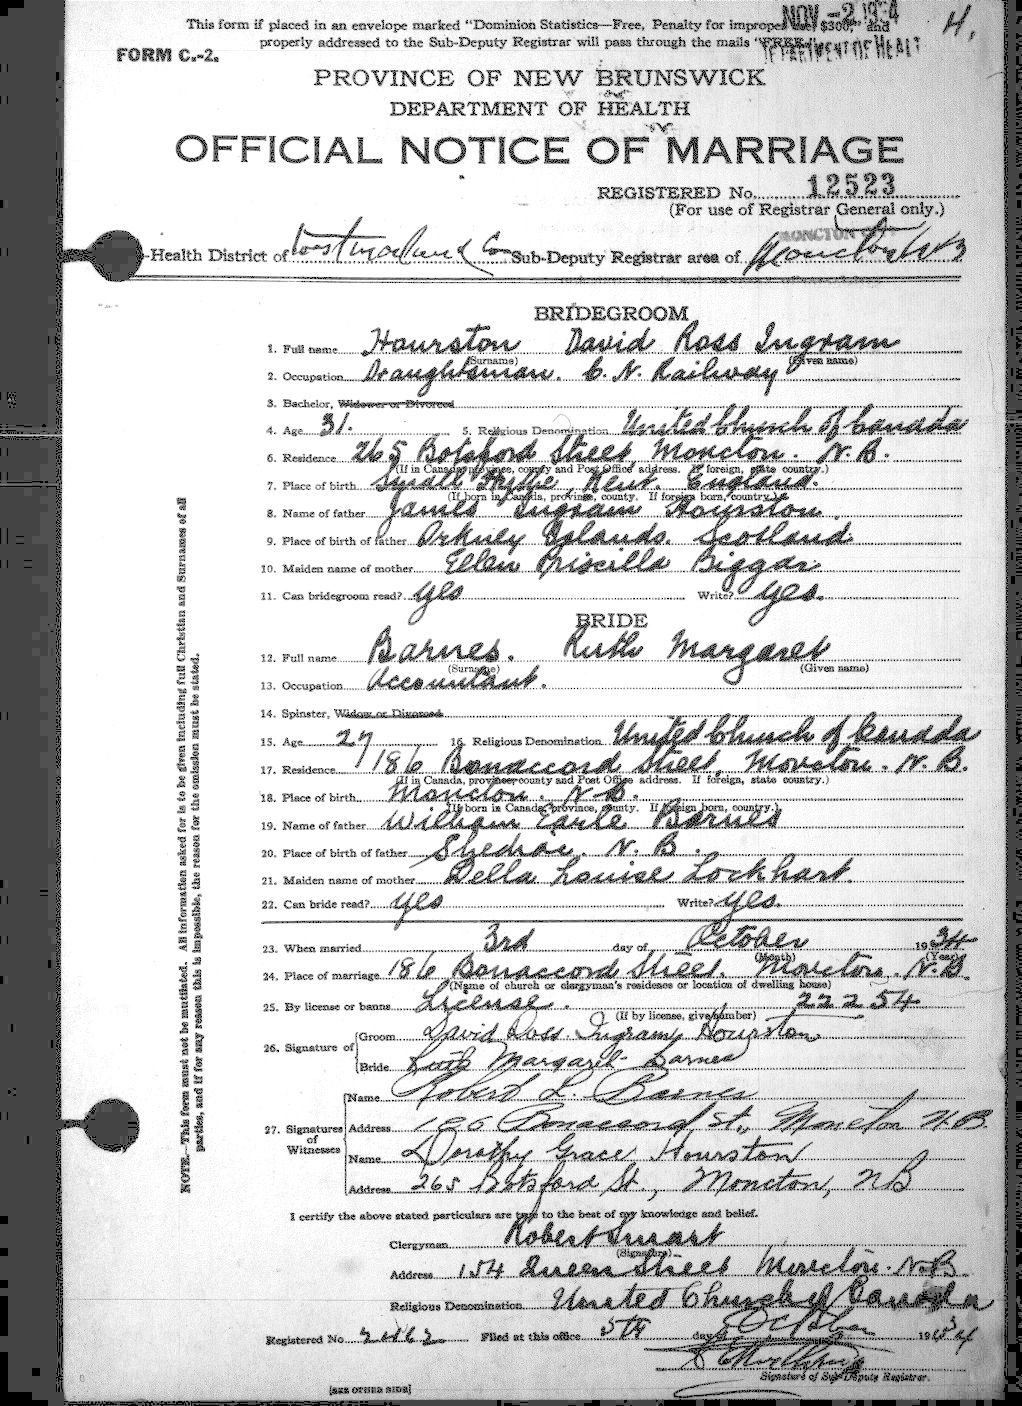 This form if placed in an envelope marked "Dominion Statistics—Free, Penalty for improper use, $300," and
properly addressed to the Sub-Deputy Registrar will pass through the mails "FREE."
NOV -2 1934
DEPARTMENT OF HEALT
4.
FORM C.-2.
PROVINCE OF NEW BRUNSWICK
DEPARTMENT OF HEALTH
OFFICIAL NOTICE OF MARRIAGE
REGISTERED No. 12523
(For use of Registrar General only.)
MONCTON
-Health District of Westmorland Co Sub-Deputy Registrar area of Moncton
BRIDEGROOM
1. Full name Hourston David Ross Ingram
(Surname) (Given name)
2. Occupation Draughtsman. C. N. Railway
3. Bachelor, Widower or Divorced
4. Age 31. 5. Religious Denomination United Church of Canada
6. Residence 265 Botsford Street, Moncton. N. B.
(If in Canada, province, county and Post Office address. If foreign, state country.)
7. Place of birth Small Hythe, Kent. England.
(If born in Canada, province, county. If foreign born, country.)
8. Name of father James Ingram Hourston.
9. Place of birth of father Orkney Islands. Scotland
10. Maiden name of mother Ellen Priscilla Biggar
11. Can bridegroom read? yes Write? yes.
BRIDE
12. Full name Barnes. Ruth Margaret
(Surname) (Given name)
13. Occupation Accountant.
14. Spinster, Widow or Divorced
15. Age 27 16. Religious Denomination United Church of Canada
17. Residence 186 Bonaccord Street, Moncton. N. B.
(If in Canada, province, county and Post Office address. If foreign, state country.)
18. Place of birth Moncton. N. B.
(If born in Canada, province, county. If foreign born, country.)
19. Name of father William Earle Barnes
20. Place of birth of father Shediac. N. B.
21. Maiden name of mother Della Louise Lockhart.
22. Can bride read? yes Write? yes.
23. When married 3rd day of October 1934
(Month) (Year)
24. Place of marriage 186 Bonaccord Street. Moncton. N. B.
(Name of church or clergyman's residence or location of dwelling house)
25. By license or banns License. 22254
(If by license, give number)
26. Signature of
Groom David Ross Ingram Hourston
Bride Ruth Margaret Barnes
27. Signatures of Witnesses
Name Robert L. Barnes
Address 186 Bonaccord St., Moncton N.B.
Name Dorothy Grace Hourston
Address 265 Botsford St., Moncton, NB
I certify the above stated particulars are true to the best of my knowledge and belief.
Clergyman Robert Smart
(Signature)
Address 154 Queen Street Moncton. N. B.
Religious Denomination United Church of Canada
Registered No Filed at this office 5th day of October 1934
Signature of Sub-Deputy Registrar.
[SEE OTHER SIDE]
NOTE.—This form must not be mutilated. All information asked for is to be given including full Christian and Surnames of all
parties, and if for any reason this is impossible, the reason for the omission must be stated.